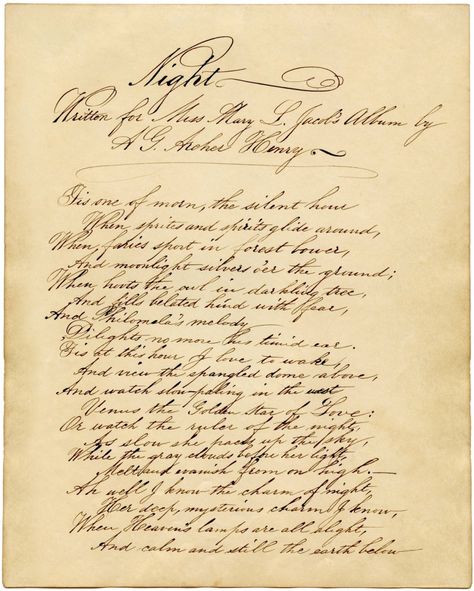 Night
Written for Miss Mary L. Jacob's Album by
A G. Archer Henry
Tis one of morn, the silent hour
When, sprites and spirits glide around,
When, faries sport in forest bower,
And moonlight silvers o'er the ground;
When hoots the owl in darkling tree,
And fills belated hind with fear,
And Philomela's melody
Dilights, no more his timid ear.
Tis at this hour I love to wake,
And view the spangled dome above,
And watch slow-paling in the west
Venus the Golden Star of Love:
Or watch the ruler of the night,
As slow she paces up the sky,
While the gray clouds before her light,
Melt and evanish from on high.—
Ah well I know the charm of night,
Her deep, mysterious charm I know,
When Heaven's lamps are all alight,
And calm and still the earth below